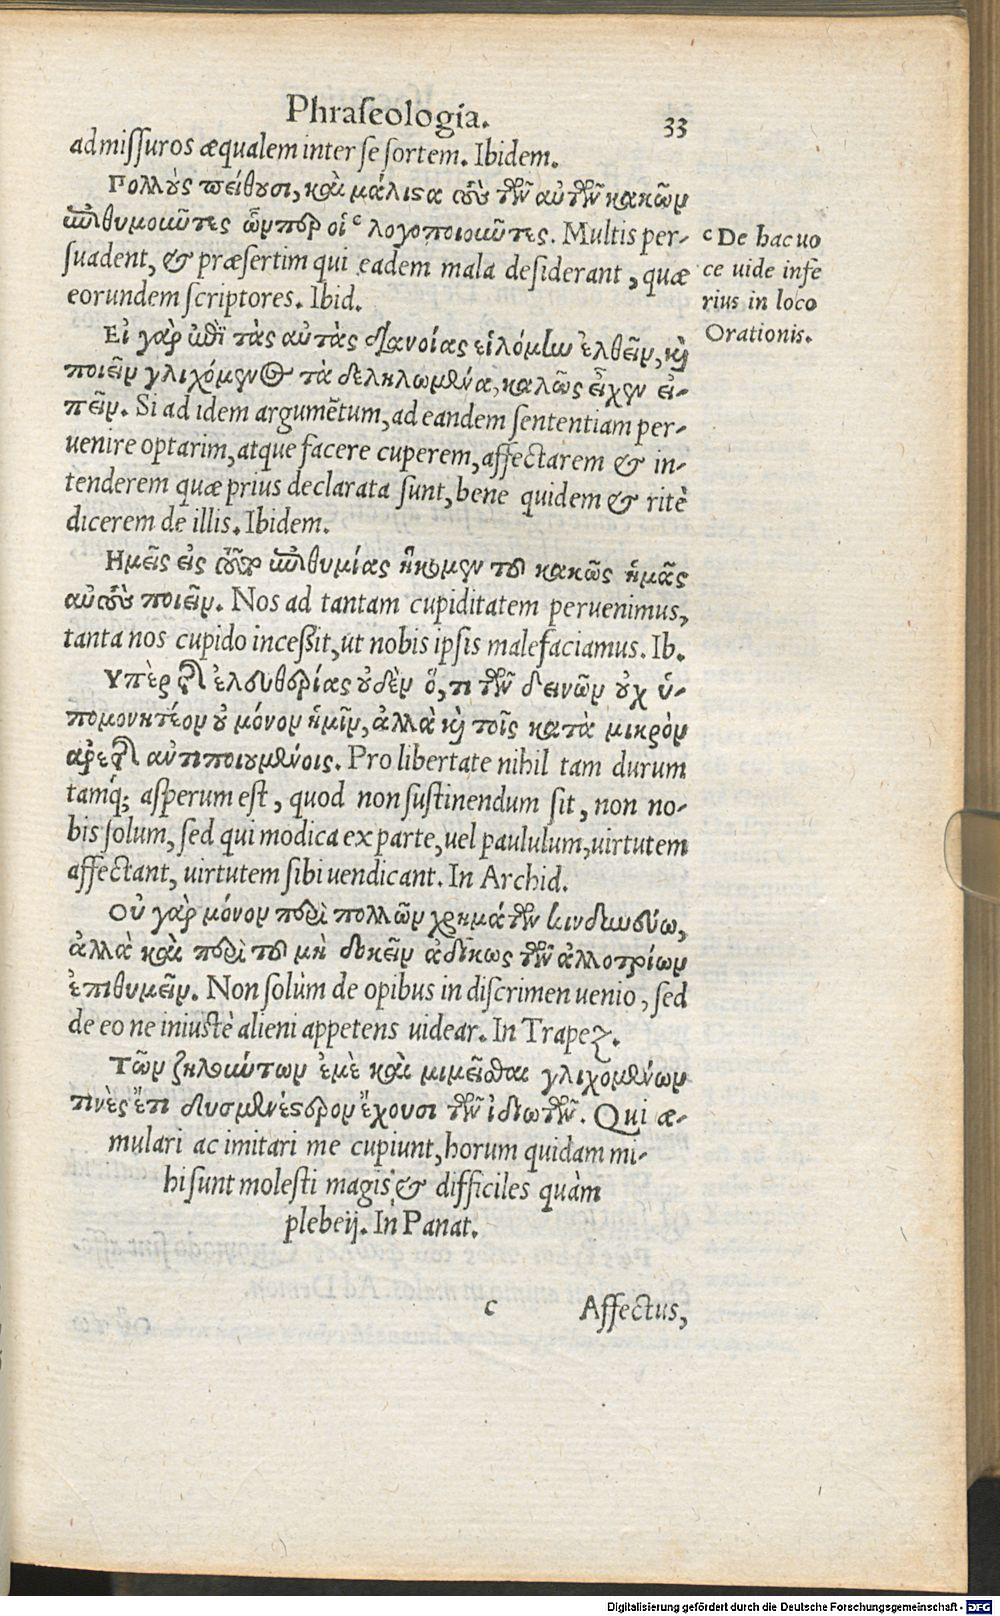 Phraseologia. 33
admissuros æqualem inter se sortem. Ibidem.
Πολλοὺς πείθουσι, καὶ μάλιστα τοὺς τῶν αὐτῶν κακῶν
ἐπιθυμοῦντες ὧνπερ οἱ ᶜ λογοποιοῦντες. Multis per-
suadent, & præsertim qui eadem mala desiderant, quæ
eorundem scriptores. Ibid.
ᶜ De hac uo
ce uide infe
rius in loco
Orationis.
Εἰ γὰρ ἐπὶ τὰς αὐτὰς διανοίας εἱλόμην ἐλθεῖν, καὶ
ποιεῖν γλιχόμενος τὰ δεδηλωμένα, καλῶς εἶχεν εἰ-
πεῖν. Si ad idem argumẽtum, ad eandem sententiam per-
uenire optarim, atque facere cuperem, affectarem & in-
tenderem quæ prius declarata sunt, bene quidem & ritè
dicerem de illis. Ibidem.
Ημεῖς εἰς τοῦτο ἐπιθυμίας ἥκομεν τοῦ κακῶς ἡμᾶς
αὐτοὺς ποιεῖν. Nos ad tantam cupiditatem peruenimus,
tanta nos cupido incessit, ut nobis ipsis malefaciamus. Ib.
Υπὲρ τῆς ἐλευθερίας οὐδὲν ὅ, τι τῶν δεινῶν οὐχ ὑ-
πομονητέον οὐ μόνον ἡμῖν, ἀλλὰ καὶ τοῖς κατὰ μικρὸν
ἀρετῆς ἀντιποιουμένοις. Pro libertate nihil tam durum
tamq́; asperum est, quod non sustinendum sit, non no-
bis solum, sed qui modica ex parte, uel paululum, uirtutem
affectant, uirtutem sibi uendicant. In Archid.
Οὐ γὰρ μόνον περὶ πολλῶν χρημάτων κινδυνεύω,
ἀλλὰ καὶ περὶ τοῦ μὴ δοκεῖν ἀδίκως τῶν ἀλλοτρίων
ἐπιθυμεῖν. Non solùm de opibus in discrimen uenio, sed
de eo ne iniustè alieni appetens uidear. In Trapez.
Τῶν ζηλούντων ἐμὲ καὶ μιμεῖσθαι γλιχομένων
τινὲς ἔτι δυσμενέστερον ἔχουσι τῶν ἰδιωτῶν. Qui æ-
mulari ac imitari me cupiunt, horum quidam mi-
hi sunt molesti magis & difficiles quàm
plebeij. In Panat.
c Affectus,
Digitalisierung gefördert durch die Deutsche Forschungsgemeinschaft - DFG